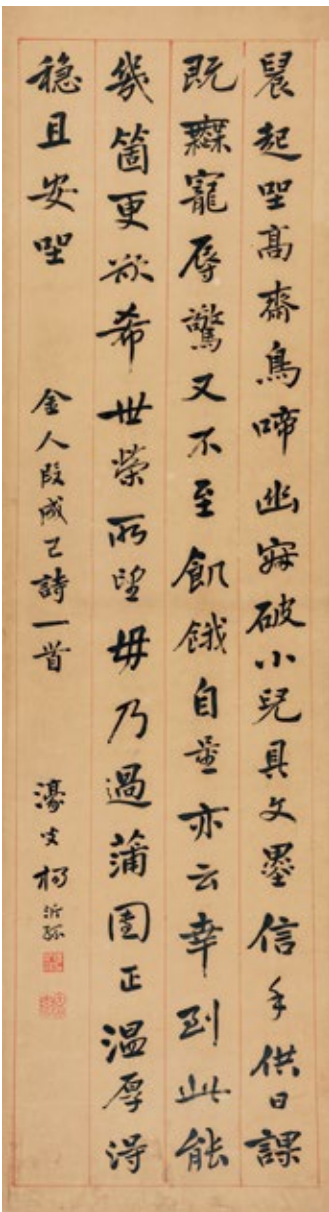 晨起坐高齋鳥啼幽寐破小兒具文墨信手供日課
既無寵辱驚又不至飢餓自量亦云幸到此能
幾箇更欲希世榮所望毋乃過蒲團正溫厚得
穩且安坐 金人段成己詩一首 濠叟楊沂孫